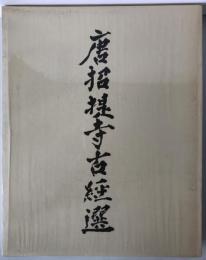 唐招提寺古経選